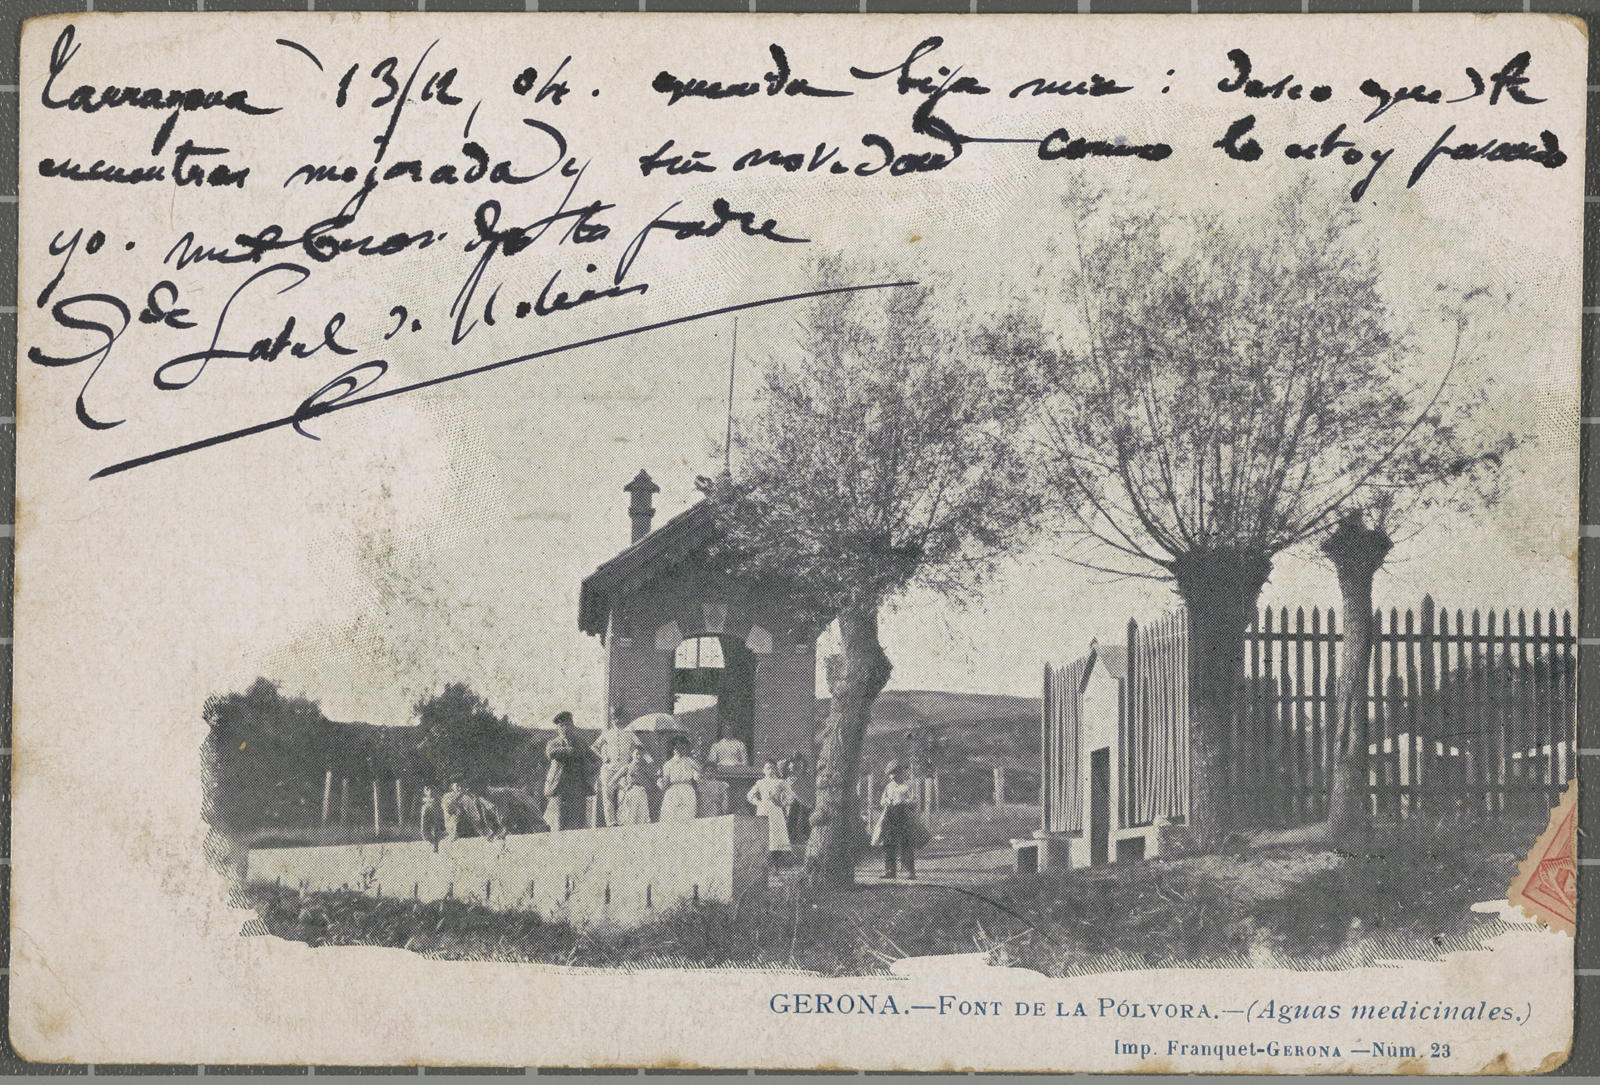 Tarragona 13/12, 04. querida hija mia: deseo que te
encuentras mejorada y sin novedad como lo estoy pasando
yo. mil besos de tu padre
GERONA.—FONT DE LA PÓLVORA.—(Aguas medicinales.)
Imp. Franquet-GERONA —Núm. 23